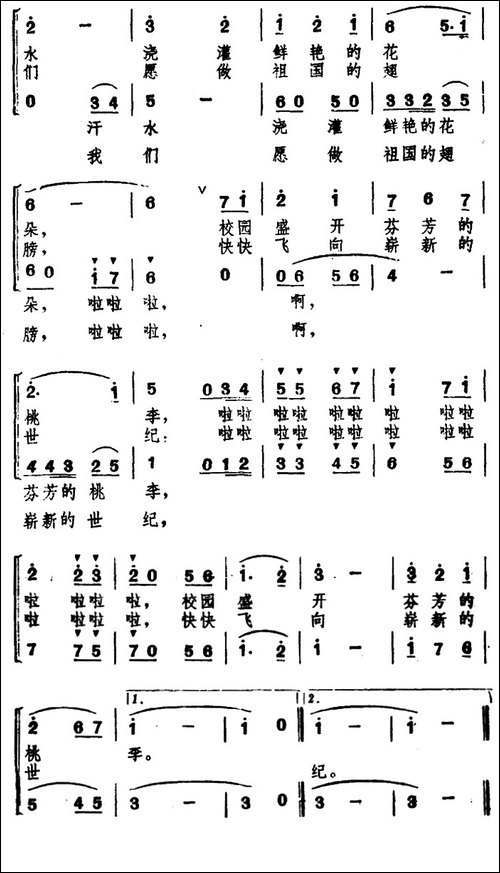 2 — 3 2 1 2 1 6 5·1
水 浇 灌 鲜 艳 的 花
们 愿 做 祖 国 的 翅
0 3 4 5 — 6 0 5 0 3 3 2 3 5
汗 水 浇 灌 鲜 艳 的 花
我 们 愿 做 祖 国 的 翅
6 — 6 ∨ 7 1 2 1 7 6 7
朵， 校园 盛 开 芬 芳 的
膀， 快快 飞 向 崭 新 的
6 0 1 7 6 0 0 6 5 6 4 —
朵， 啦 啦 啦， 啊，
膀， 啦 啦 啦， 啊，
2· 1 5 0 3 4 5 5 6 7 1 7 1
桃 李， 啦啦 啦啦 啦啦 啦 啦啦
世 纪： 啦啦 啦啦 啦啦 啦 啦啦
4 4 3 2 5 1 0 1 2 3 3 4 5 6 5 6
芬 芳 的 桃 李，
崭 新 的 世 纪，
2 2 3 2 0 5 6 1· 2 3 — 3 2 1
啦 啦 啦 啦， 校园 盛 开 芬 芳 的
啦 啦 啦 啦， 快快 飞 向 崭 新 的
7 7 5 7 0 5 6 1· 2 1 — 1 7 6
1. 2.
2 6 7 1 — 1 0 1 — 1 —
桃 李。
世 纪。
5 4 5 3 — 3 0 3 — 3 —